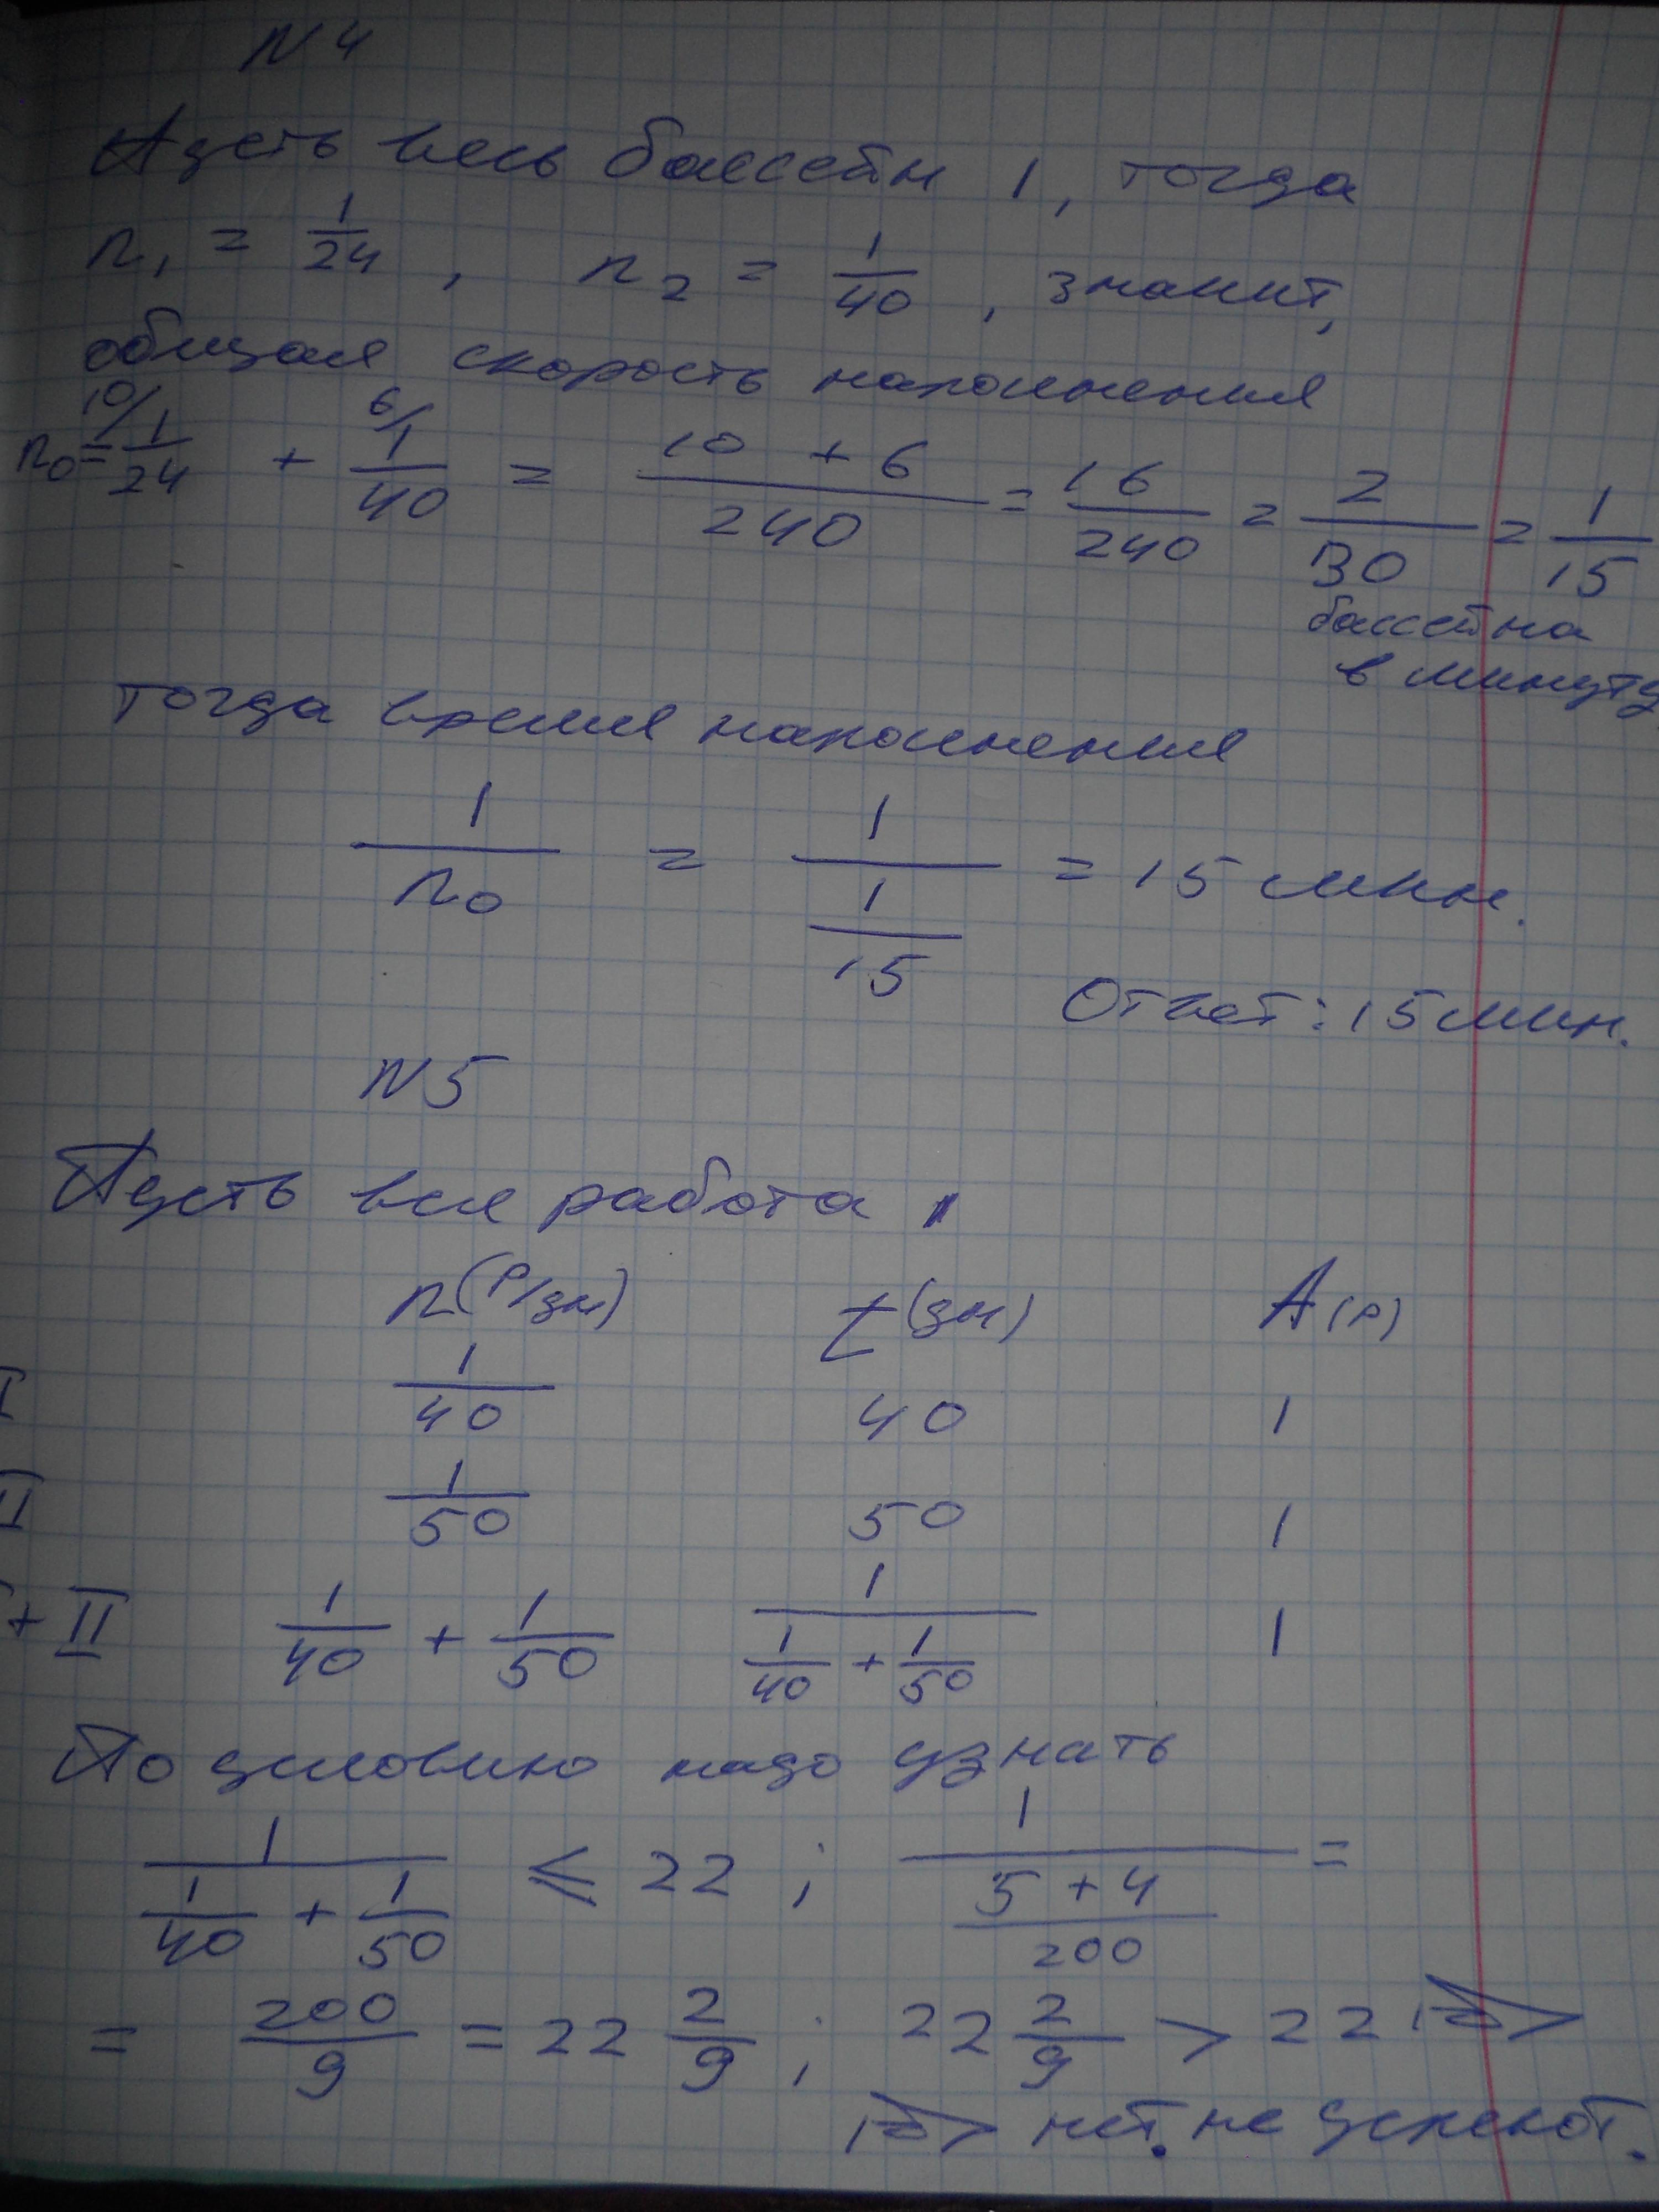 N 4
Пусть весь бассейн 1, тогда
n₁ = 1/24, n₂ = 1/40, значит,
общая скорость наполнения
n₀ = 10/ 1/24 + 6/ 1/40 = (10 + 6)/240 = 16/240 = 2/30 = 1/15
бассейна
в минуту,
тогда время наполнения
1/n₀ = 1/(1/15) = 15 мин.
Ответ: 15 мин.
N 5
Пусть вся работа 1
n (р/дн) t (дн) A (р)
I 1/40 40 1
II 1/50 50 1
+ II 1/40 + 1/50 1/(1/40 + 1/50) 1
По условию надо узнать
1/(1/40 + 1/50) ⩽ 22 ; 1/((5 + 4)/200) =
= 200/9 = 22 2/9 ; 22 2/9 > 22 =>
=> нет. не успеют.